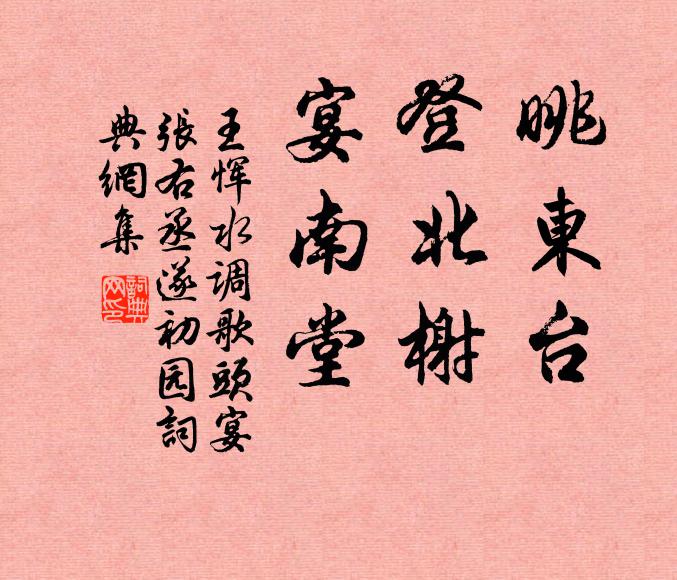 眺東台
登北榭
宴南堂
王惲水调歌頭宴
張右丞遂初园詞
典網集
詞典網印